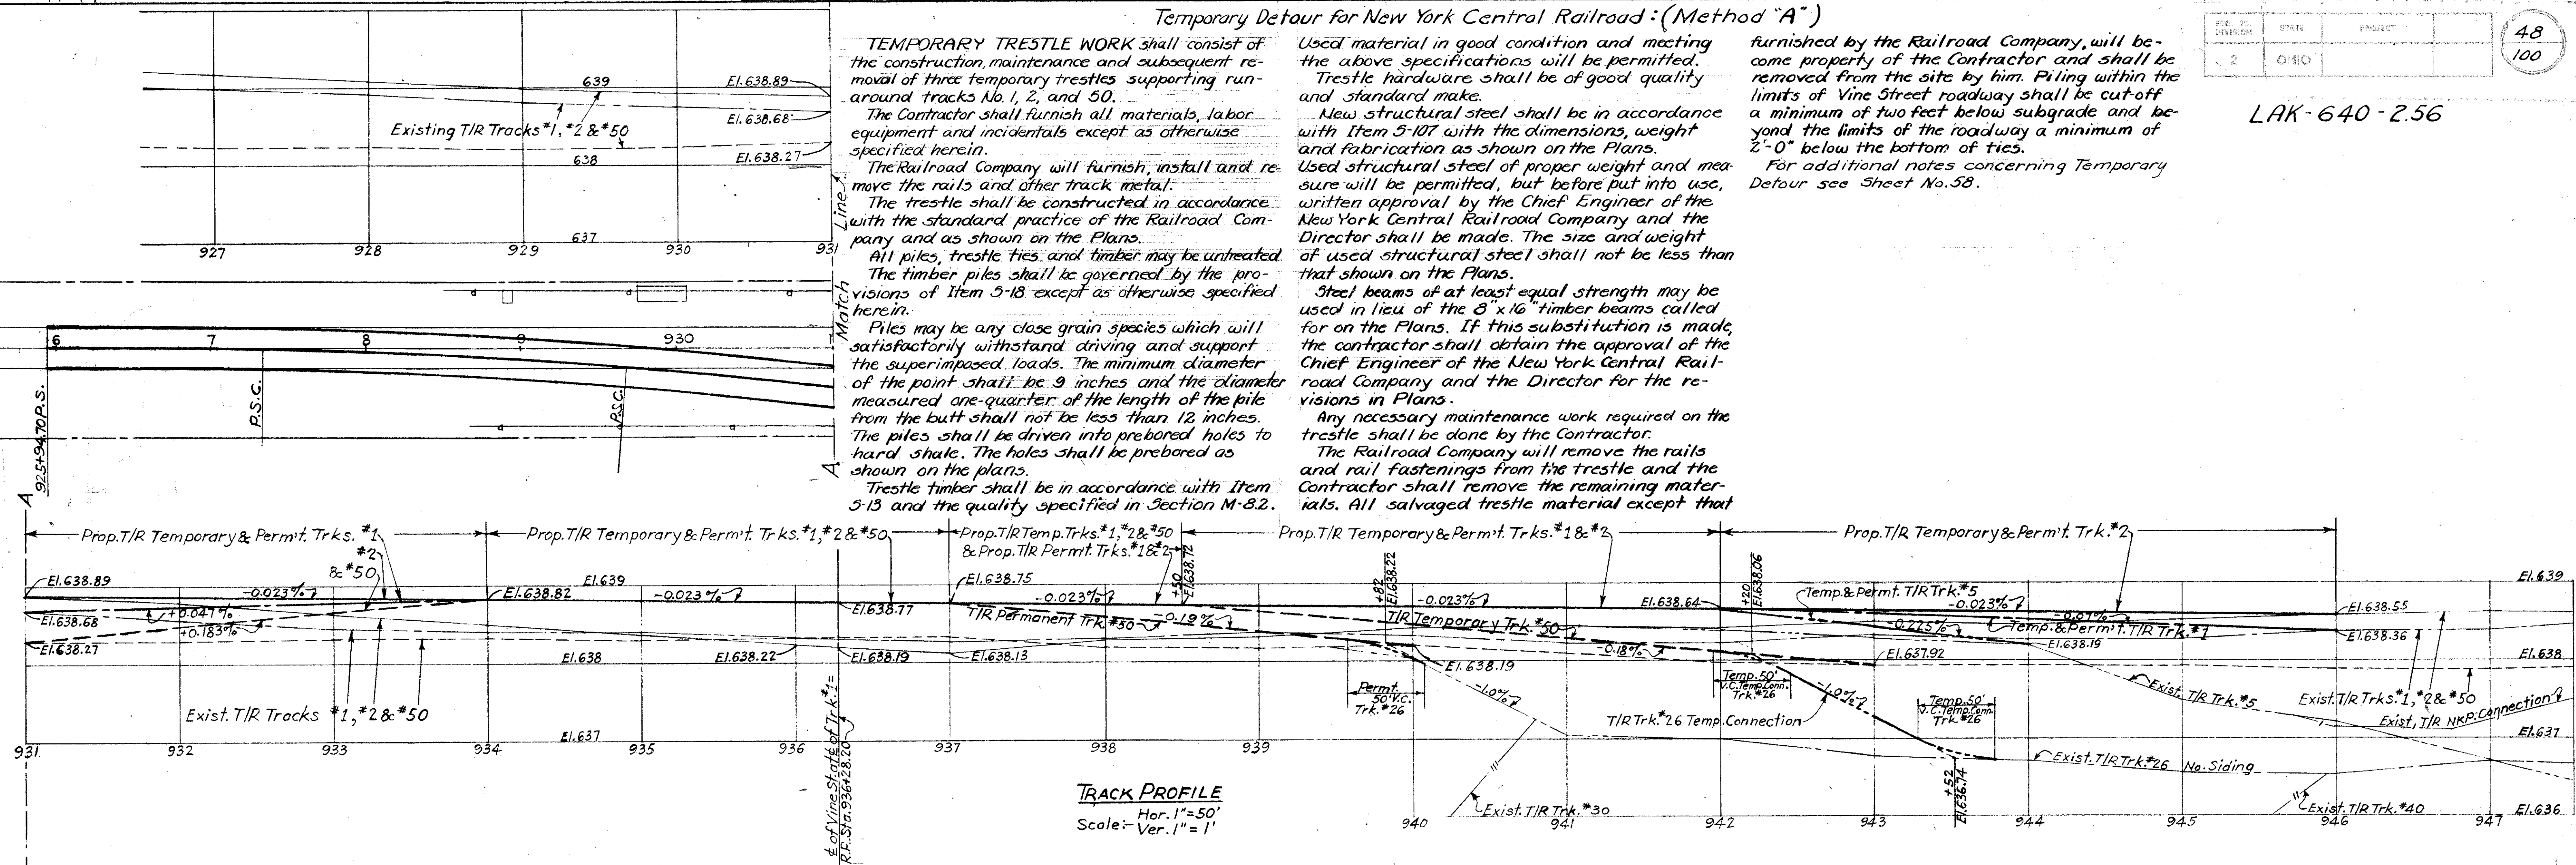 Temporary Detour for New York Central Railroad: (Method "A")
TEMPORARY TRESTLE WORK shall consist of
the construction, maintenance and subsequent re-
moval of three temporary trestles supporting run-
around tracks No. 1, 2, and 50.
The Contractor shall furnish all materials, labor
equipment and incidentals except as otherwise
specified herein.
The Railroad Company will furnish, install and re-
move the rails and other track metal.
The trestle shall be constructed in accordance
with the standard practice of the Railroad Com-
pany and as shown on the Plans.
All piles, trestle ties and timber may be untreated
The timber piles shall be governed by the pro-
visions of Item S-18 except as otherwise specified
herein.
Piles may be any close grain species which will
satisfactorily withstand driving and support
the superimposed loads. The minimum diameter
of the point shall be 9 inches and the diameter
measured one-quarter of the length of the pile
from the butt shall not be less than 12 inches.
The piles shall be driven into prebored holes to
hard shale. The holes shall be prebored as
shown on the plans.
Trestle timber shall be in accordance with Item
S-13 and the quality specified in Section M-8.2.
Used material in good condition and meeting
the above specifications will be permitted.
Trestle hardware shall be of good quality
and standard make.
New structural steel shall be in accordance
with Item S-107 with the dimensions, weight
and fabrication as shown on the Plans.
Used structural steel of proper weight and mea-
sure will be permitted, but before put into use,
written approval by the Chief Engineer of the
New York Central Railroad Company and the
Director shall be made. The size and weight
of used structural steel shall not be less than
that shown on the Plans.
Steel beams of at least equal strength may be
used in lieu of the 8"x16" timber beams called
for on the Plans. If this substitution is made,
the contractor shall obtain the approval of the
Chief Engineer of the New York Central Rail-
road Company and the Director for the re-
visions in Plans.
Any necessary maintenance work required on the
trestle shall be done by the Contractor.
The Railroad Company will remove the rails
and rail fastenings from the trestle and the
Contractor shall remove the remaining mater-
ials. All salvaged trestle material except that
furnished by the Railroad Company, will be-
come property of the Contractor and shall be
removed from the site by him. Piling within the
limits of Vine Street roadway shall be cut-off
a minimum of two feet below subgrade and be-
yond the limits of the roadway a minimum of
2'-0" below the bottom of ties.
For additional notes concerning Temporary
Detour see Sheet No. 58.
FED. RD. DIVISION STATE PROJECT
2 OHIO
48
100
LAK-640-2.56
639 El.638.89
El.638.68
Existing T/R Tracks #1, #2 & #50
638 El.638.27
637
927 928 929 930 931
A Match Line A
6 7 8 9 930
925+94.70 P.S.
P.S.C.
P.S.C.
A
Prop. T/R Temporary & Perm't. Trks. #1
#2
& #50
Prop. T/R Temporary & Perm't. Trks. #1, #2 & #50
Prop. T/R Temp. Trks. #1, #2 & #50
& Prop. T/R Permit. Trks. #1 & #2
Prop. T/R Temporary & Perm't. Trks. #1 & #2
Prop. T/R Temporary & Perm't. Trk. #2
+50 El.638.72
+82 El.638.22
+20 El.638.06
El.638.89 -0.023% El.638.82 El.639 -0.023% El.638.77 El.638.75 -0.023% -0.023% El.638.64
Temp. & Permt. T/R Trk. #5
-0.023% -0.07% El.638.55 El.639
+0.047%
El.638.68
+0.183%
T/R Permanent Trk #50 -0.19%
T/R Temporary Trk. #50
-0.225%
Temp. & Perm't. T/R Trk. #1
El.638.36
El.638.27 El.638 El.638.22 El.638.19 El.638.13 El.638.19 -0.18% El.637.92 El.638.19 El.638
Permt. 50' V.C. Trk. #26
-1.0%
Temp. 50' V.C. Temp. Conn. Trk. #26
-1.0%
Temp. 50' V.C. Temp. Conn. Trk. #26
Exist. T/R Trk. #5
Exist. T/R Trks. #1, #2 & #50
Exist. T/R NKP. Connection
Exist. T/R Tracks #1, #2 & #50
T/R Trk. #26 Temp. Connection
El.637 El.637
Exist. T/R Trk. #26 No. Siding
+52 El.636.74
Exist. T/R Trk. #30
Exist. T/R Trk. #40
El.636
931 932 933 934 935 936 937 938 939
940 941 942 943 944 945 946 947
℄ of Vine St. at ℄ of Trk. #1=
R.R. Sta. 936+28.20
TRACK PROFILE
Scale:- Hor. 1"=50'
Ver. 1"=1'